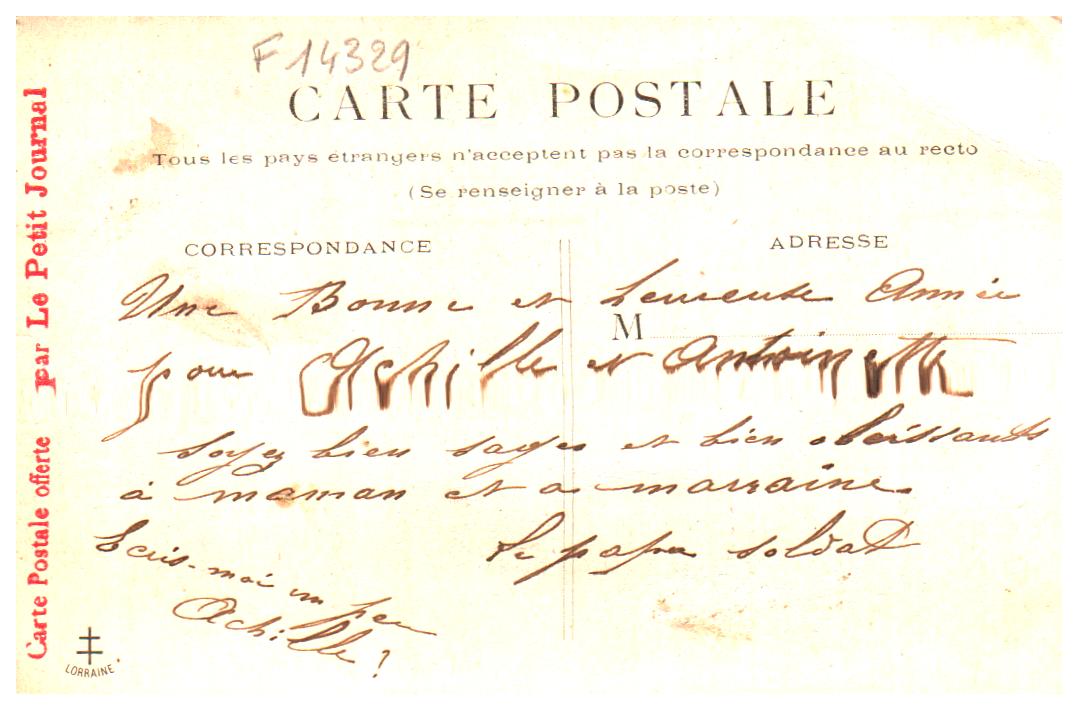 F 14329
CARTE POSTALE
Tous les pays étrangers n'acceptent pas la correspondance au recto
(Se renseigner à la poste)
CORRESPONDANCE
ADRESSE
Une Bonne et heureuse Année
M
pour Achille et Antoinette
Soyez bien sages et bien obéissants
à maman et a marraine.
Le papa soldat
Ecris-moi un peu
Achille?
Carte Postale offerte par Le Petit Journal
LORRAINE